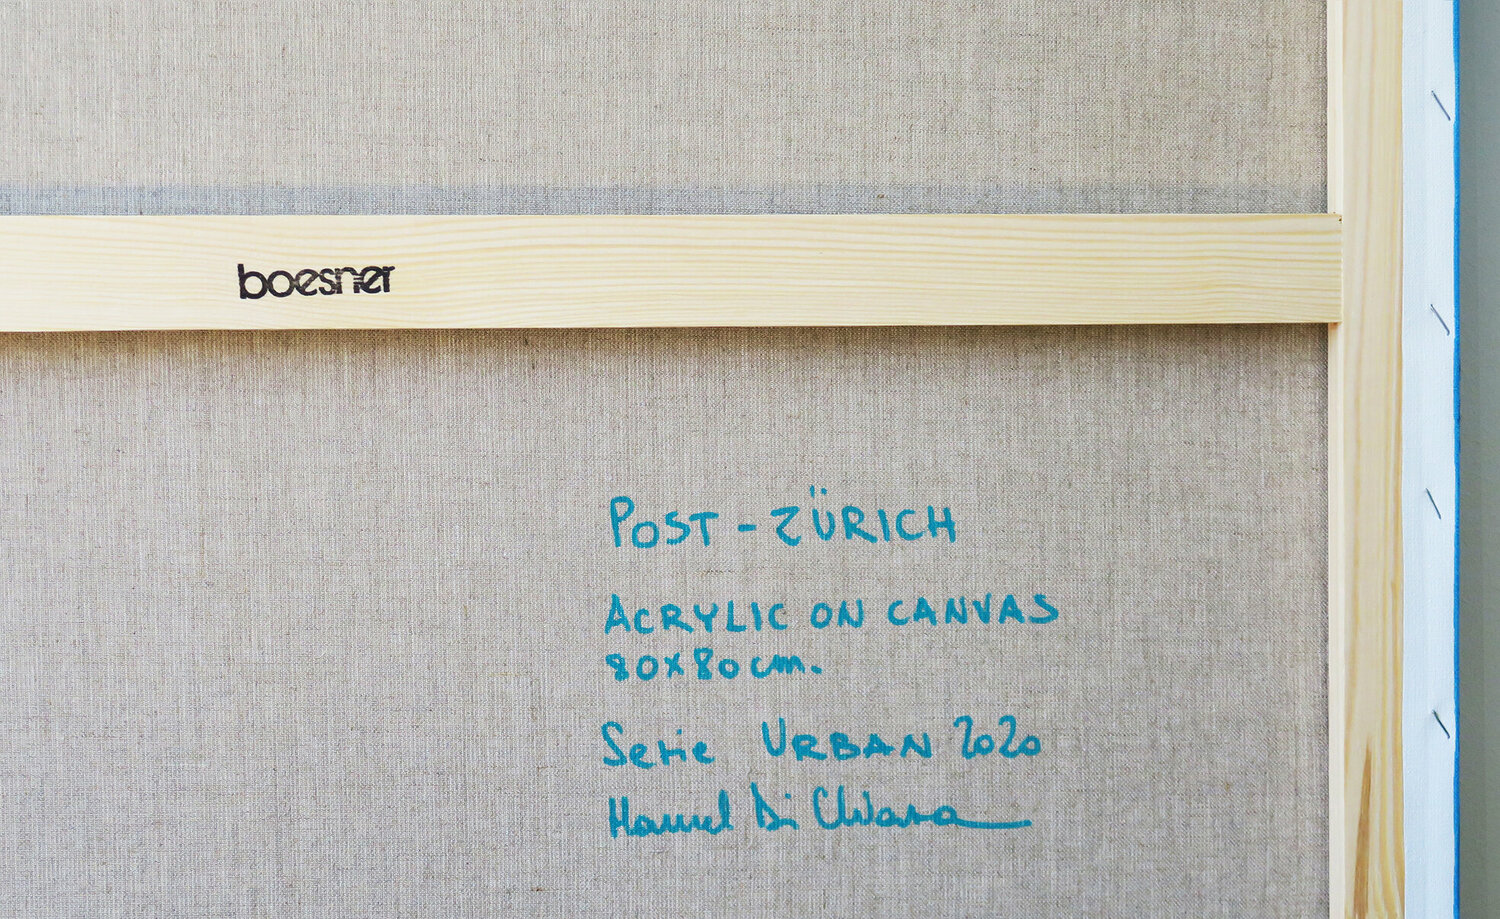 boesner
POST - ZÜRICH
ACRYLIC ON CANVAS
80x80cm.
Serie URBAN 2020
Manuel Di Chiara